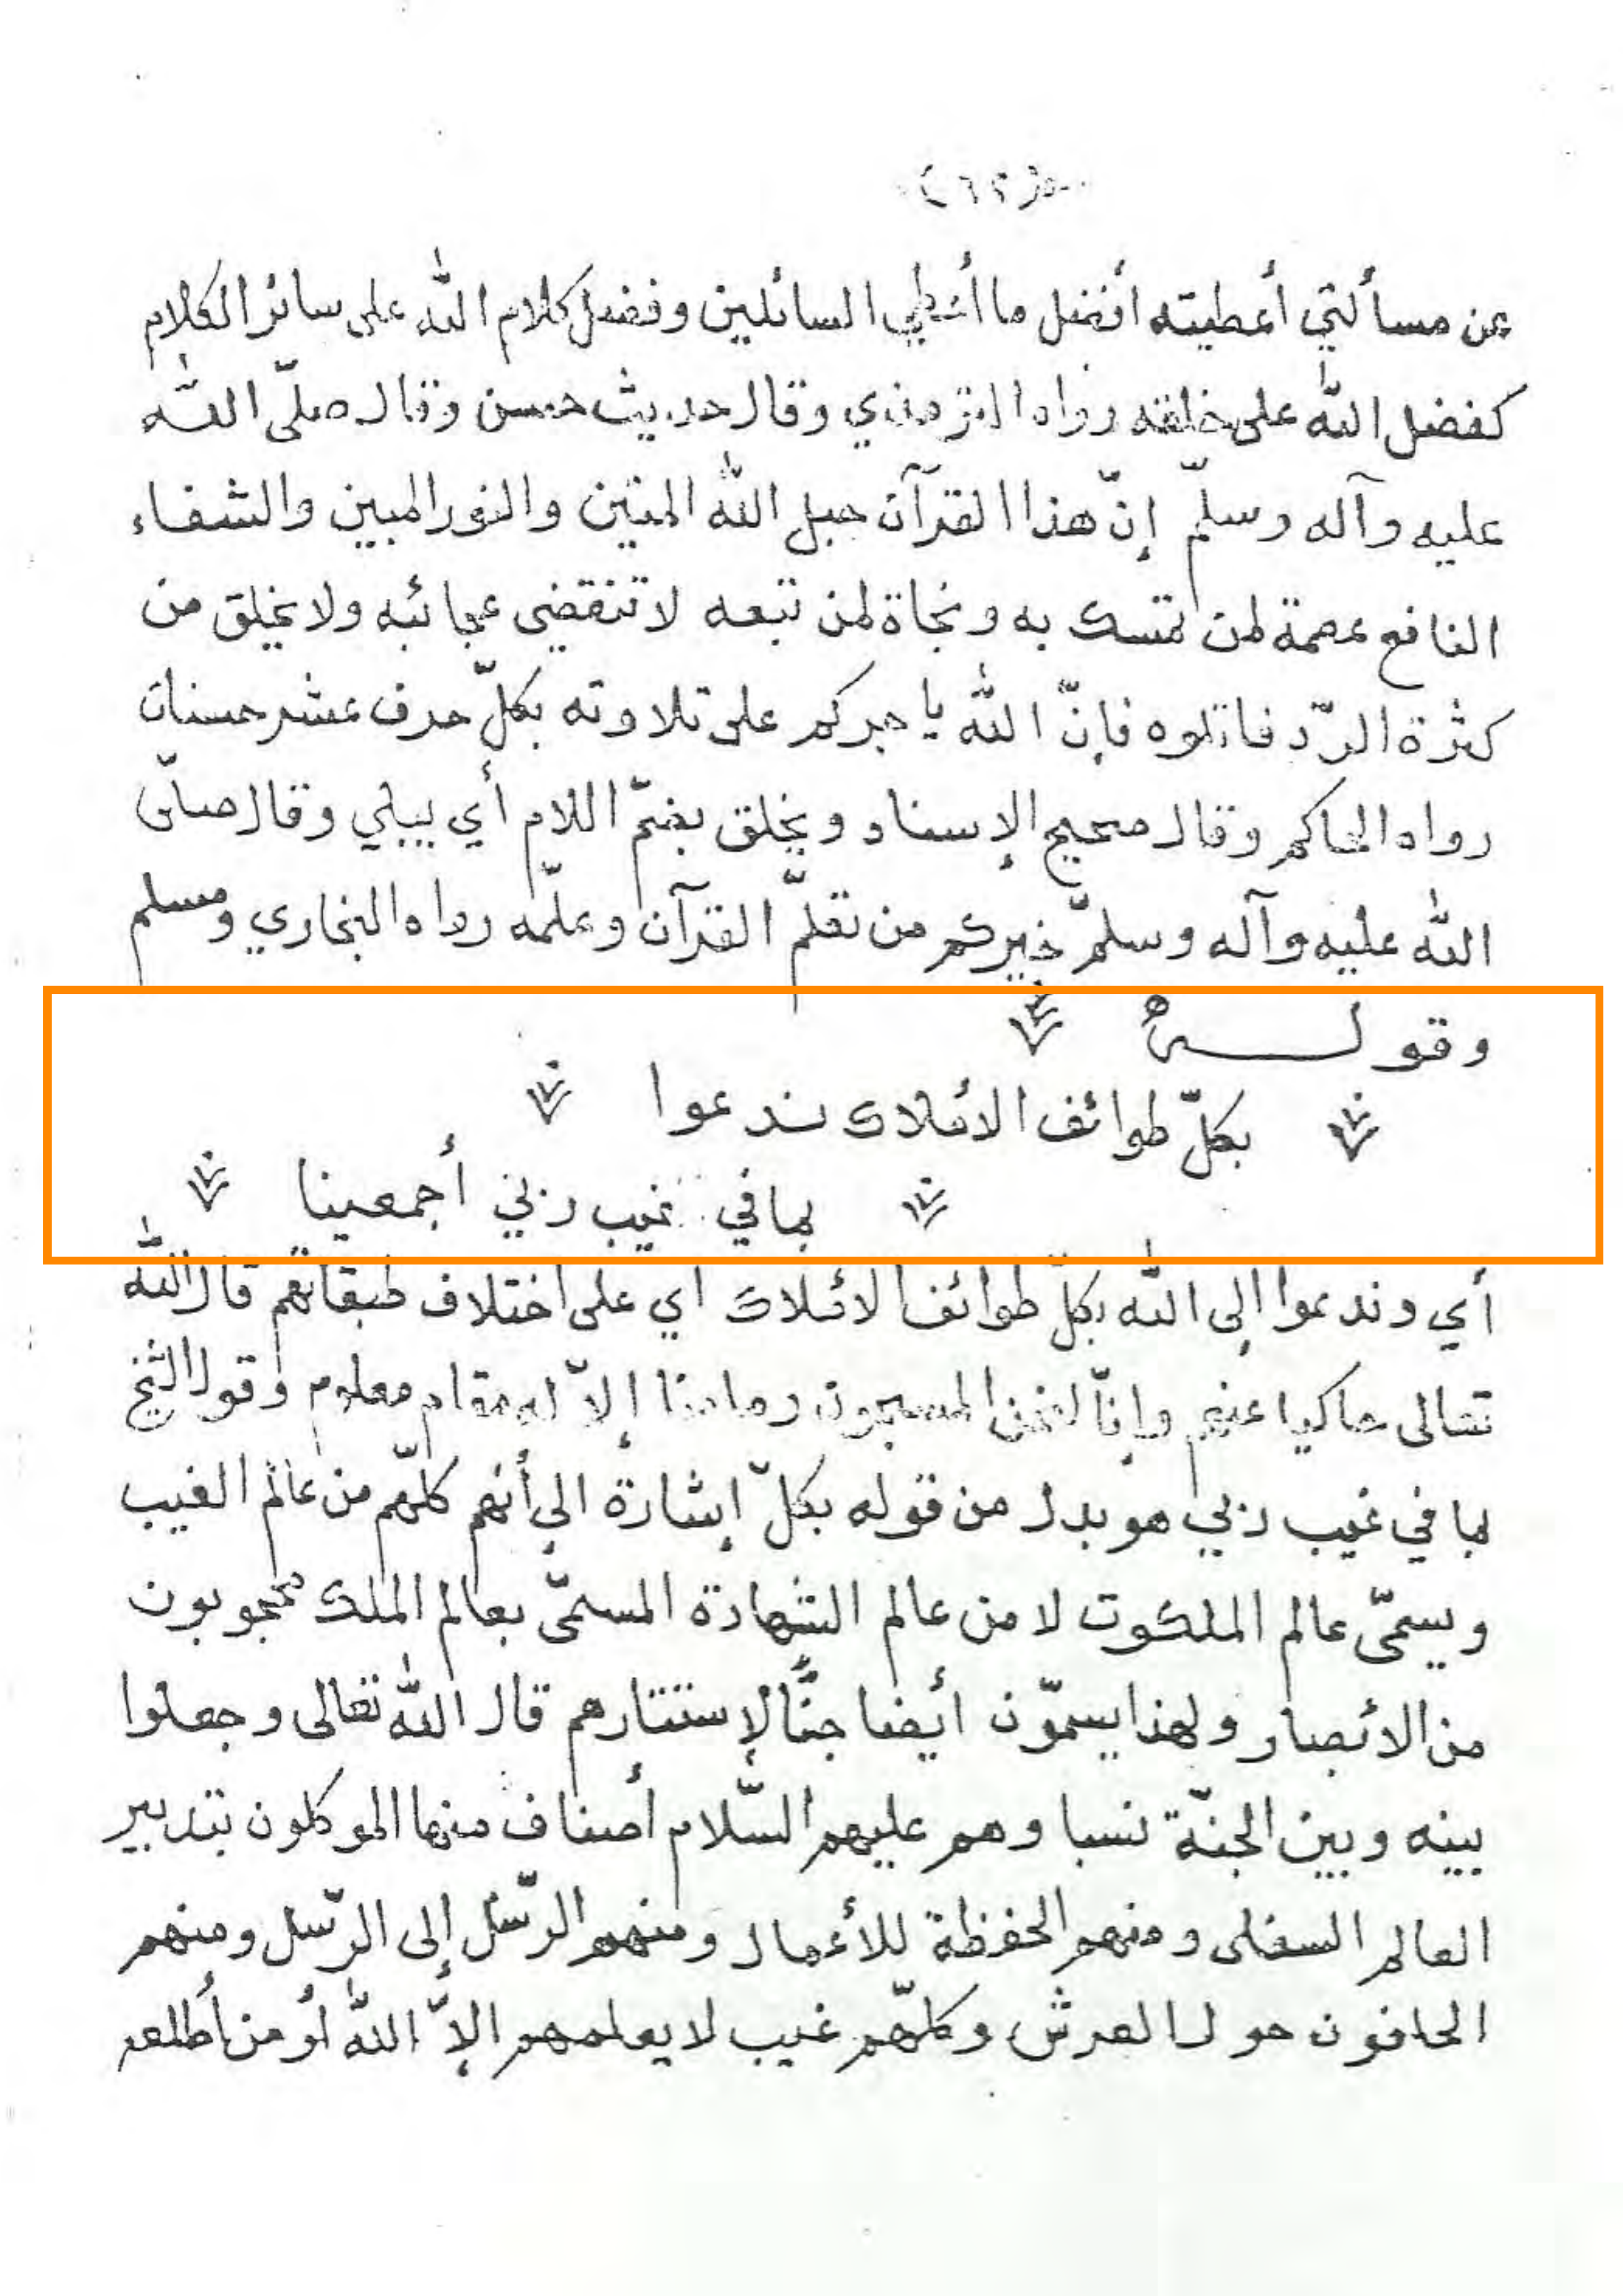 ٦٢
عن مسألتي أعطيته أفضل ما أعطي السائلين وفضل كلام الله على سائر الكلام
كفضل الله على خلقه رواه الترمذي وقال حديث حسن وقال صلّى الله
عليه وآله وسلّم إنّ هذا القرآن حبل الله المتين والنور المبين والشفاء
النافع عصمة لمن تمسك به ونجاة لمن تبعه لا تنقضي عجائبه ولا يخلق من
كثرة الردّ فاتلوه فإنّ الله يأجركم على تلاوته بكلّ حرف عشر حسنات
رواه الحاكم وقال صحيح الإسناد ويخلق بضمّ اللام أي يبلي وقال صلّى
الله عليه وآله وسلّم خيركم من تعلّم القرآن وعلّمه رواه البخاري ومسلم
وقوله
بكلّ طوائف الأملاك ندعوا
بما في غيب ربّي أجمعينا
أي وندعوا إلى الله بكلّ طوائف الأملاك أي على اختلاف طبقاتهم قال الله
تعالى حاكيا عنهم وإنّا لنحن المسبحون وما منا إلاّ له مقام معلوم وقول الشيخ
بما في غيب ربي هو بدل من قوله بكلّ إشارة إلى أنهم كلّهم من عالم الغيب
ويسمّى عالم الملكوت لا من عالم الشهادة المسمّى بعالم الملك محجوبون
من الأبصار ولهذا يسمّون أيضا جنّا لإستتارهم قال الله تعالى وجعلوا
بينه وبين الجنّة نسبا وهم عليهم السّلام أصناف منها الموكلون بتدبير
العالم السفلى ومنهم الحفظة للأعمال ومنهم الرّسل إلى الرّسل ومنهم
الحافون حول العرش وكلّهم غيب لا يعلمهم إلاّ الله أو من أطلعه